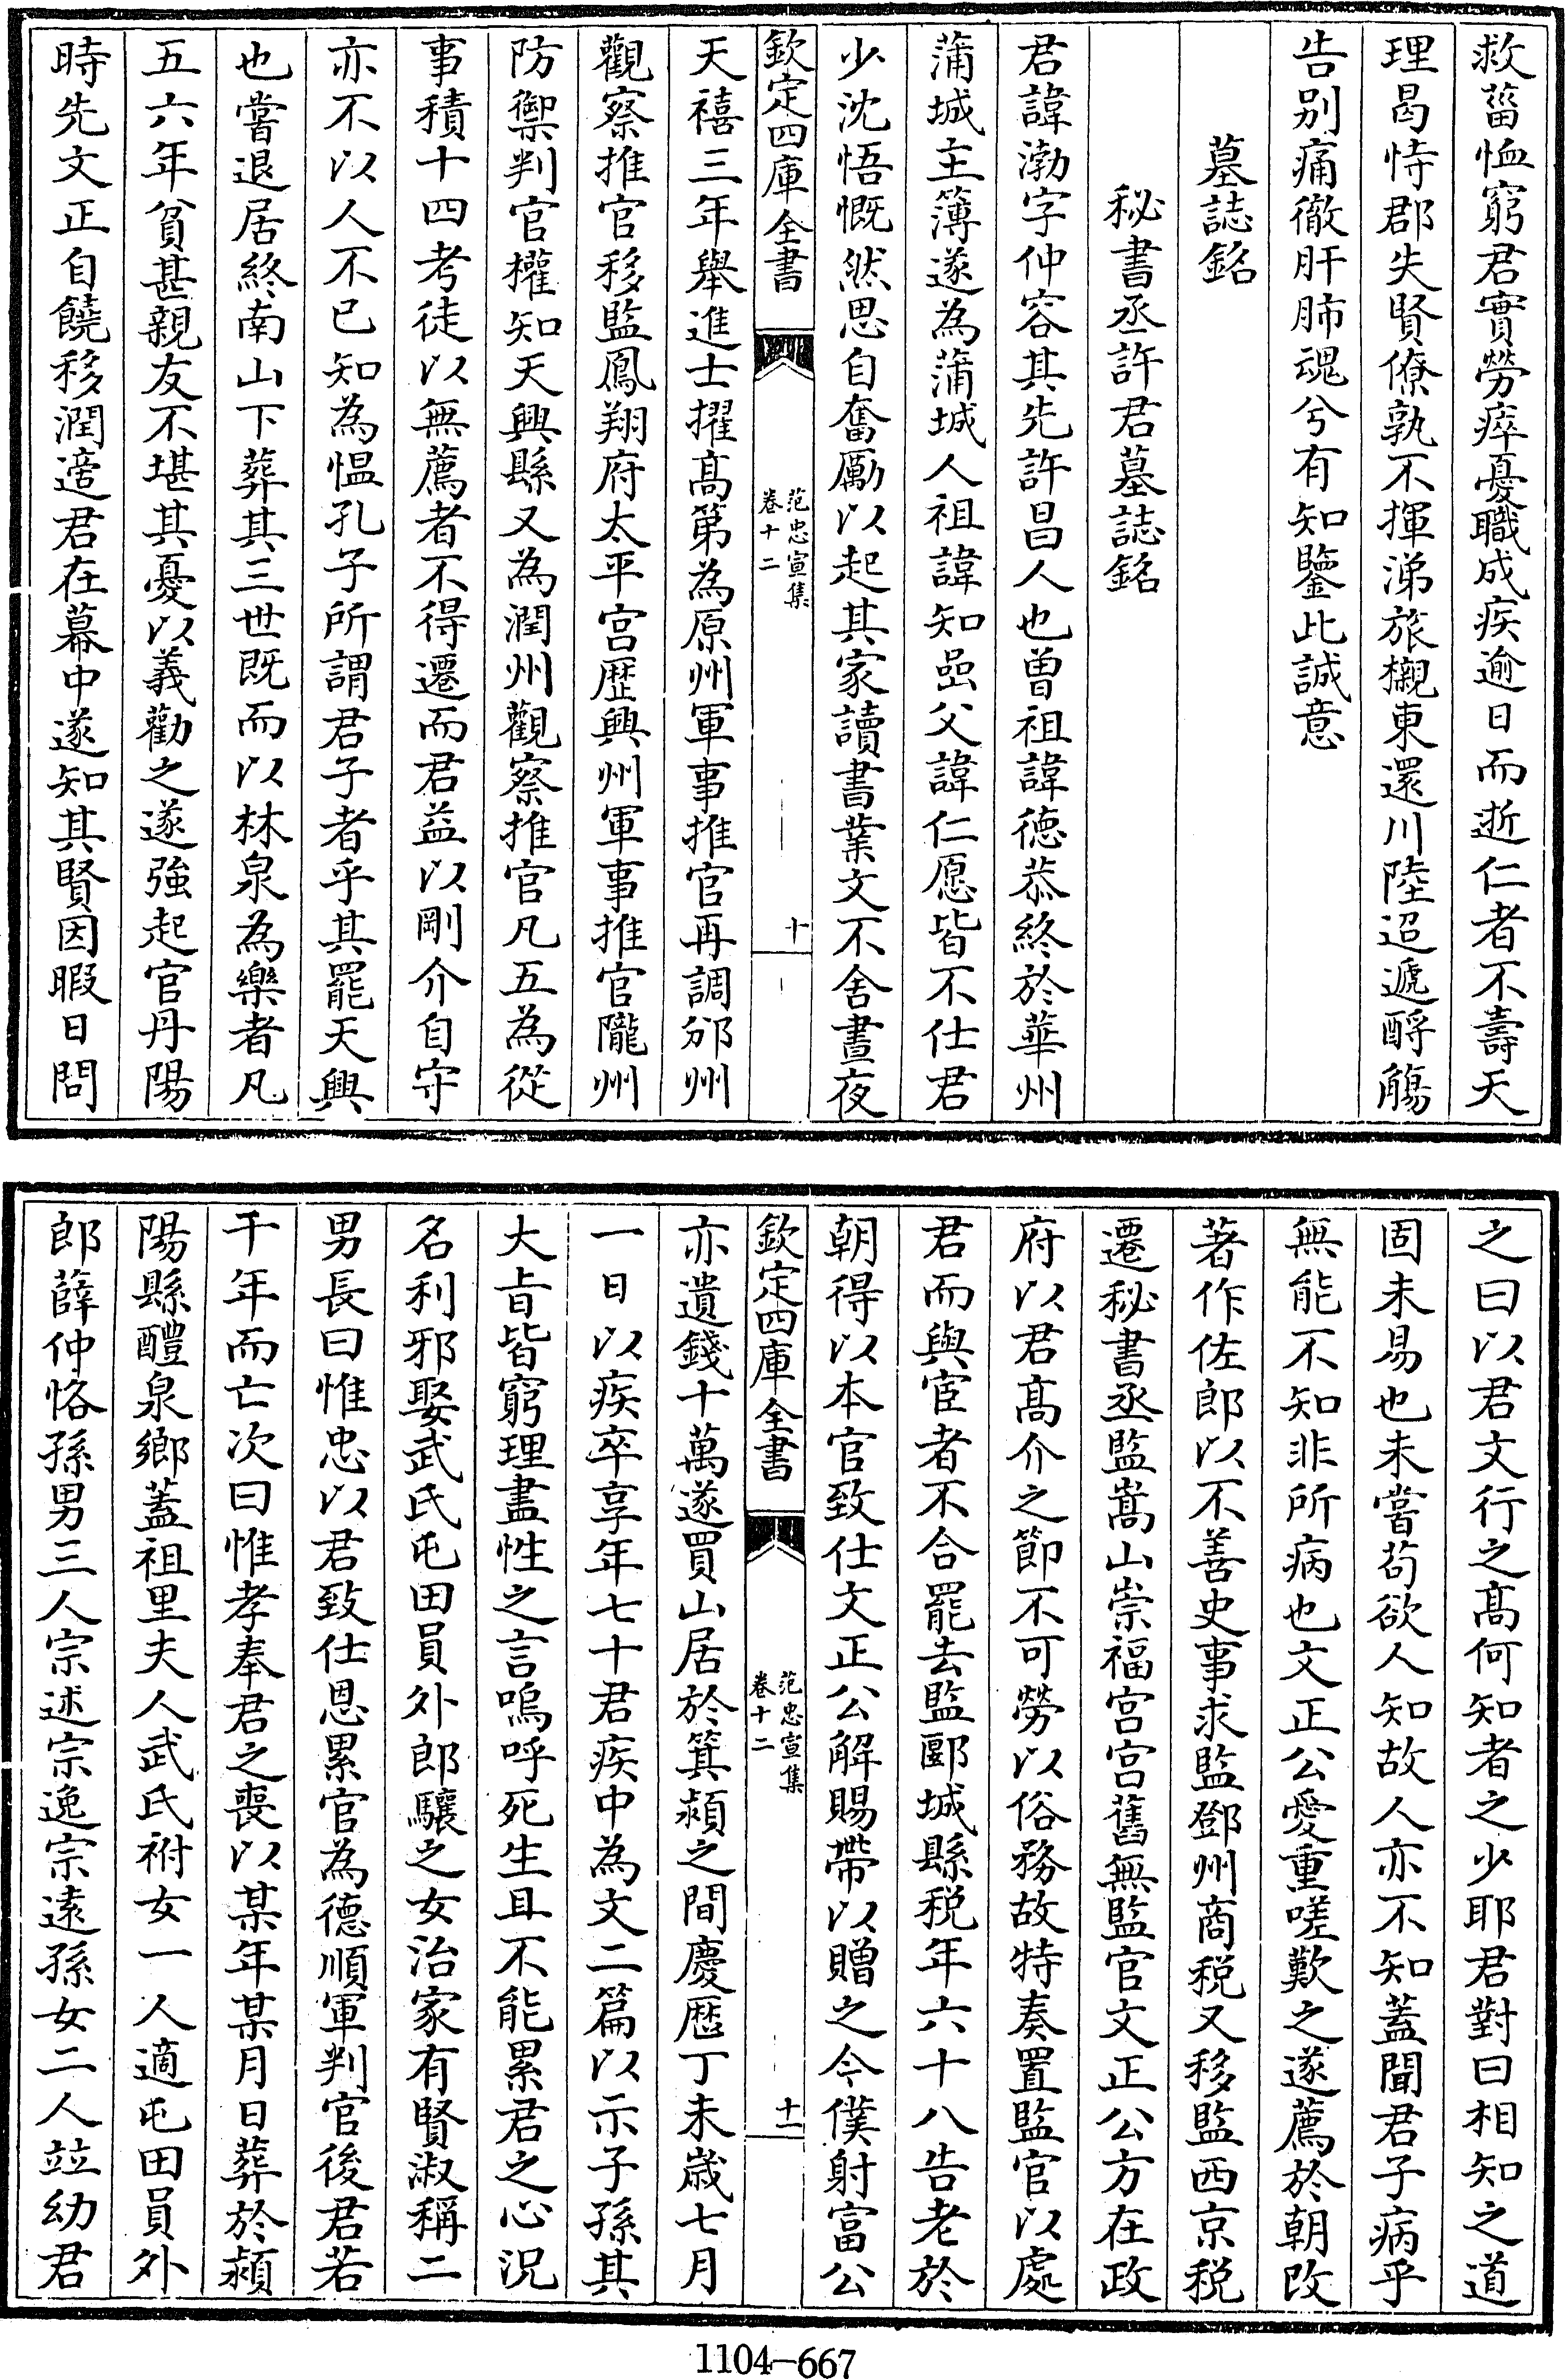 救菑恤窮君實勞瘁憂職成疾逾日而逝仁者不壽天
理曷恃郡失賢僚孰不揮涕旅櫬東還川陸迢遞酹觴
告别痛徹肝肺魂兮有知鑒此誠意
墓誌銘
秘書丞許君墓誌銘
君諱渤字仲容其先許昌人也曽祖諱德恭終於華州
蒲城主簿遂為蒲城人祖諱知嵒父諱仁愿皆不仕君
少沈悟慨然思自奮勵以起其家讀書業文不舍晝夜
欽定四庫全書
范忠宣集
卷十二
十
天禧三年舉進士擢髙第為原州軍事推官再調邠州
觀察推官移監鳳翔府太平宫歴興州軍事推官隴州
防禦判官權知天興縣又為潤州觀察推官凡五為從
事積十四考徒以無薦者不得遷而君益以剛介自守
亦不以人不已知為愠孔子所謂君子者乎其罷天興
也嘗退居終南山下葬其三世既而以林泉為樂者凡
五六年貧甚親友不堪其憂以義勸之遂強起官丹陽
時先文正自饒移潤適君在幕中遂知其賢因暇日問
之曰以君文行之髙何知者之少耶君對曰相知之道
固未易也未嘗苟欲人知故人亦不知蓋聞君子病乎
無能不知非所病也文正公愛重嗟歎之遂薦於朝改
著作佐郎以不善史事求監鄧州商税又移監西京税
遷秘書丞監嵩山崇福宫宫舊無監官文正公方在政
府以君髙介之節不可勞以俗務故特奏置監官以處
君而與宦者不合罷去監郾城縣税年六十八告老於
朝得以本官致仕文正公解賜帶以贈之今僕射富公
欽定四庫全書
范忠宣集
卷十二
十一
亦遺錢十萬遂買山居於箕潁之間慶厯丁未歲七月
一日以疾卒享年七十君疾中為文二篇以示子孫其
大㫖皆窮理盡性之言嗚呼死生且不能累君之心況
名利邪娶武氏屯田員外郎驤之女治家有賢淑稱二
男長曰惟忠以君致仕恩累官為德順軍判官後君若
干年而亡次曰惟孝奉君之喪以某年某月日葬於潁
陽縣醴泉鄉蓋祖里夫人武氏祔女一人適屯田員外
郎薛仲恪孫男三人宗述宗逸宗逺孫女二人竝幼君
1104-667